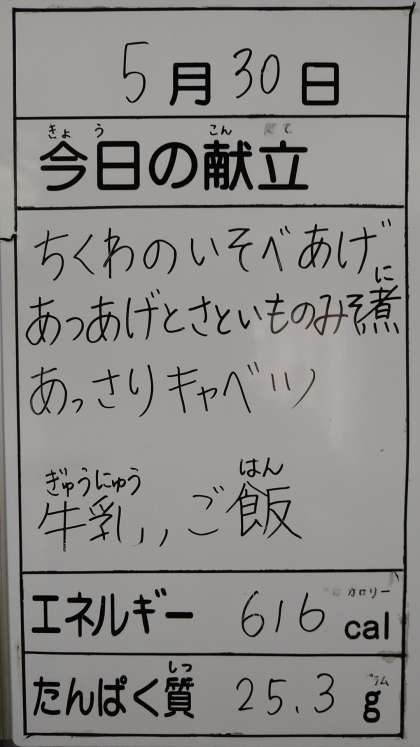 5月30日
きょう こん だて
今日の献立
ちくわのいそべあげ
に
あつあげとさといものみそ煮
あっさりキャベツ
ぎゅうにゅう はん
牛乳,,ご飯
カロリー
エネルギー 616 cal
しつ グラム
たんぱく質 25.3 g